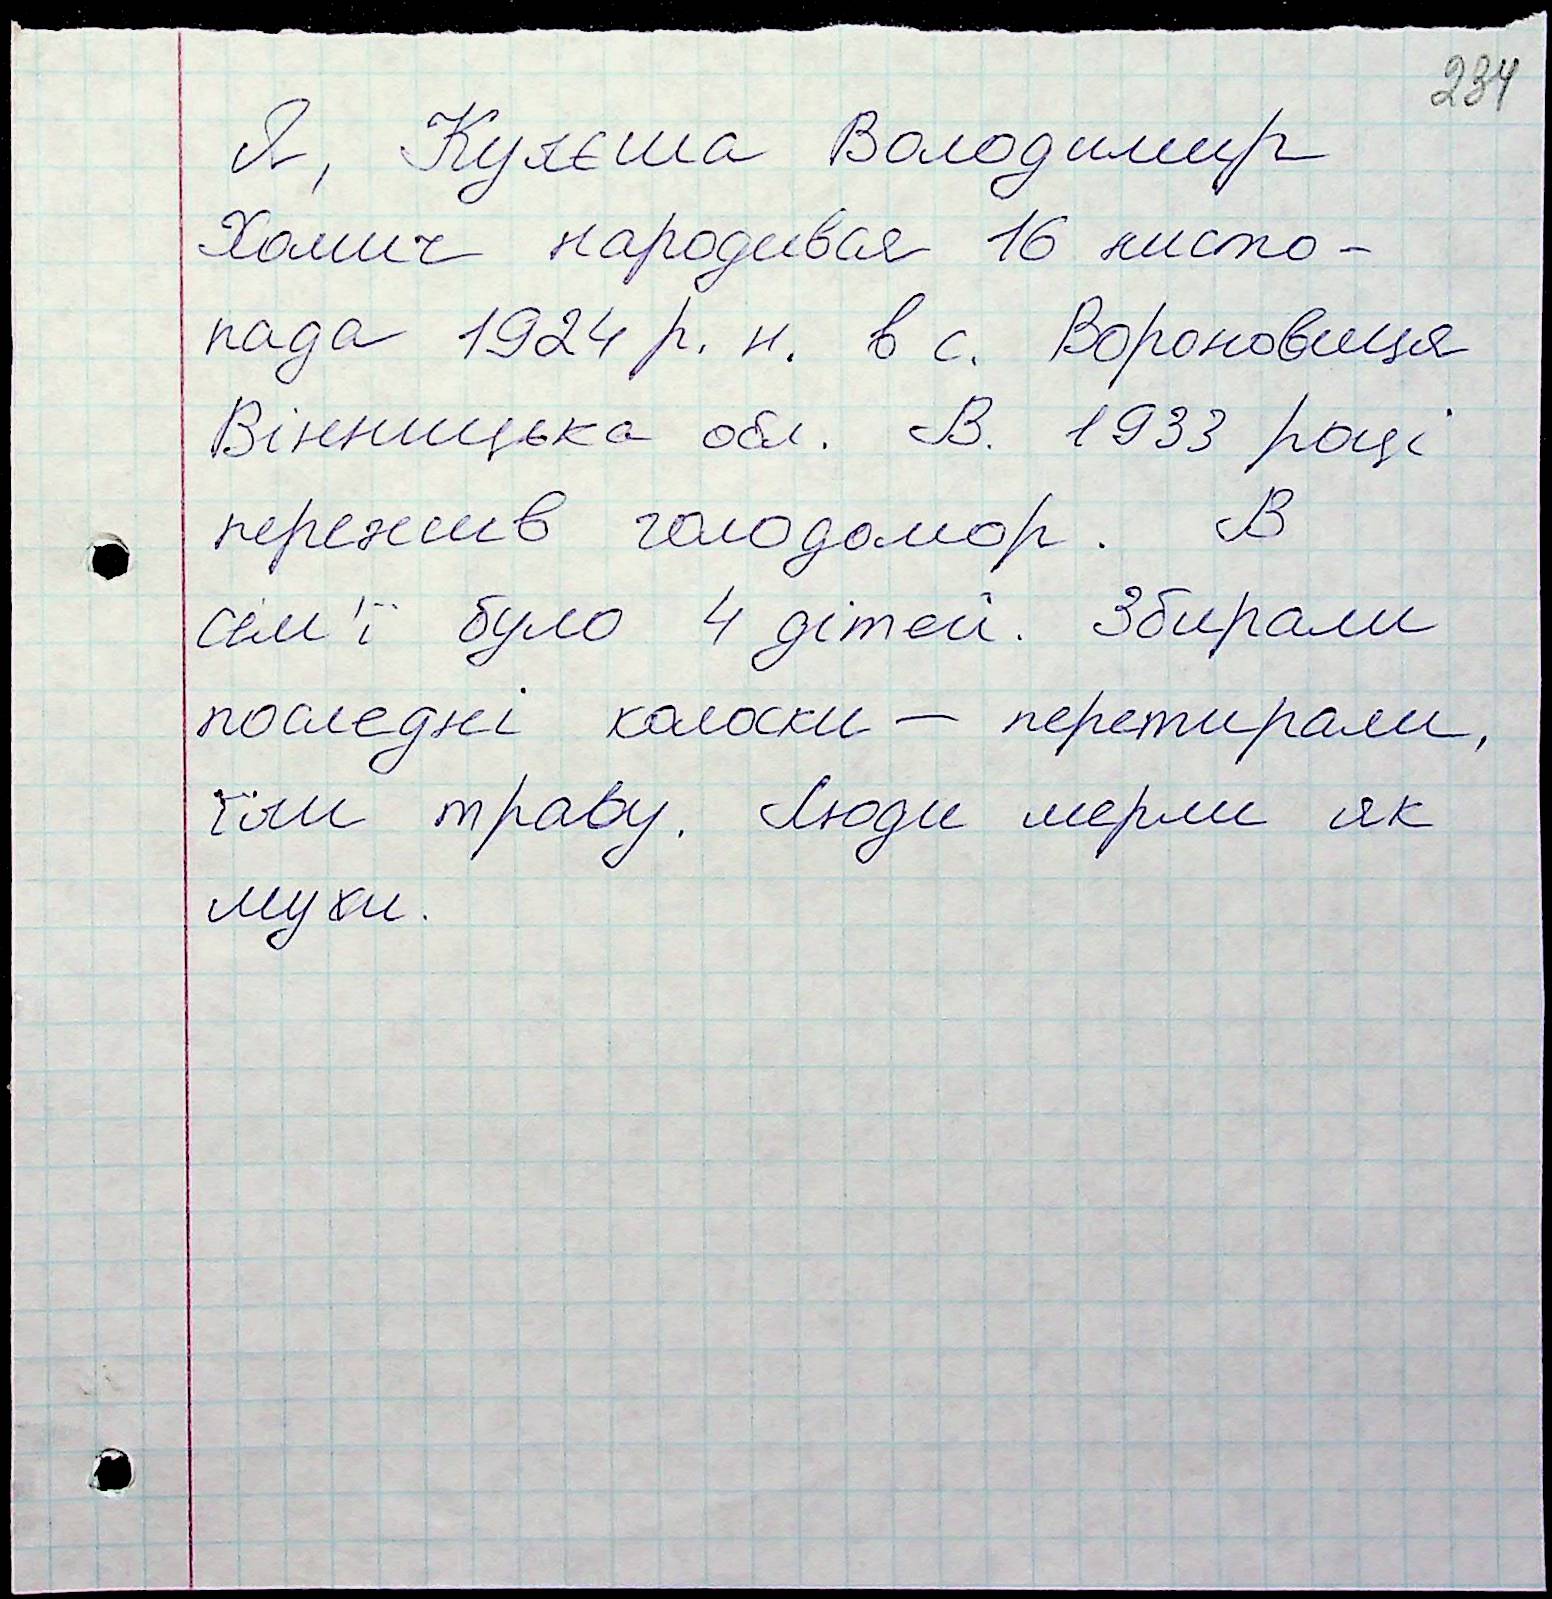 234
Я, Кулєша Володимир
Хомич народився 16 листо-
пада 1924 р. н. в с. Вороновиця
Вінницька обл. В. 1933 році
пережив голодомор. В
сім'ї було 4 дітей. Збирали
последні колоски – перетирали,
їли траву. Люди мерли як
мухи.